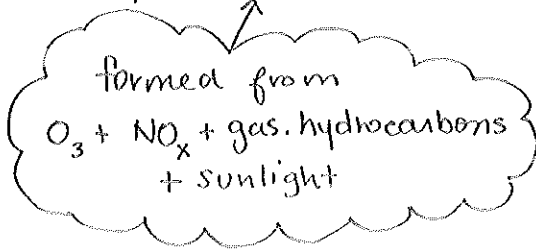 formed from
O₃ + NOₓ + gas. hydrocarbons
+ sunlight